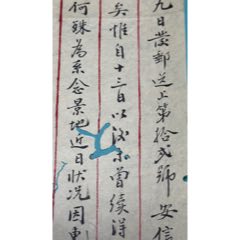 九日發郵送上第拾弍號 安信
矣惟自十三日以後未曾續得
何殊為系念景地近日狀况因東